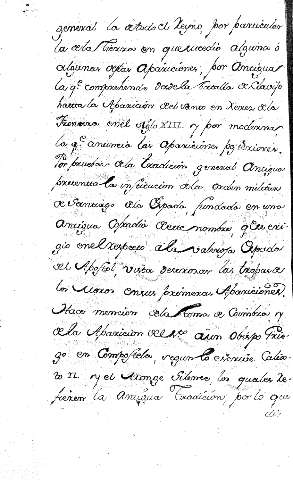 general la de todo el Reyno, por particular
la de la Tierra en que sucedio alguna ó
algunas otras Apariciones; por Antigua
la q.e comprehende desde la Batalla de Clavijo
hasta la Aparicion del Santo en Xerez de la
Frontera en el siglo XIII. y por moderna
la q.e anuncia las Apariciones posteriores.
Por pruebas de la tradicion general Antigua
presenta la institucion de la orden militar
de Santiago de la Espada fundada en una
Antigua Cofradia de este nombre, q.e se eri
gio en el respecto a la valerosa Espada
del Apostol, vista destrozar las tropas de
los Moros en sus primeras Apariciones.
Hace mencion de la toma de Coimbra y
de la Aparicion del S.to a un Obispo Grie
go en Compostela segun lo escrive Calix
to II. y el Monge Silense los quales re
fieren la Antigua Tradicion, por lo que